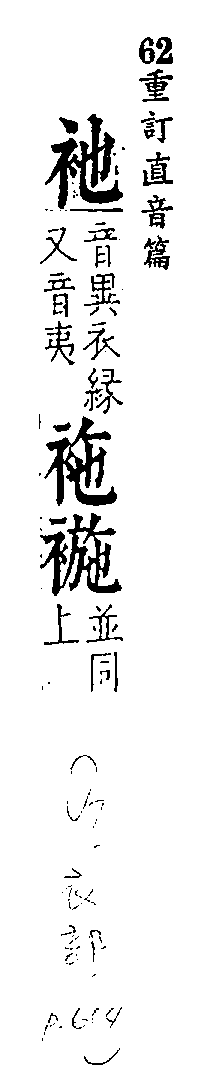 62重訂直音篇
衪
音異衣緣
又音夷
袘
並同
上
衣部.
p.614)